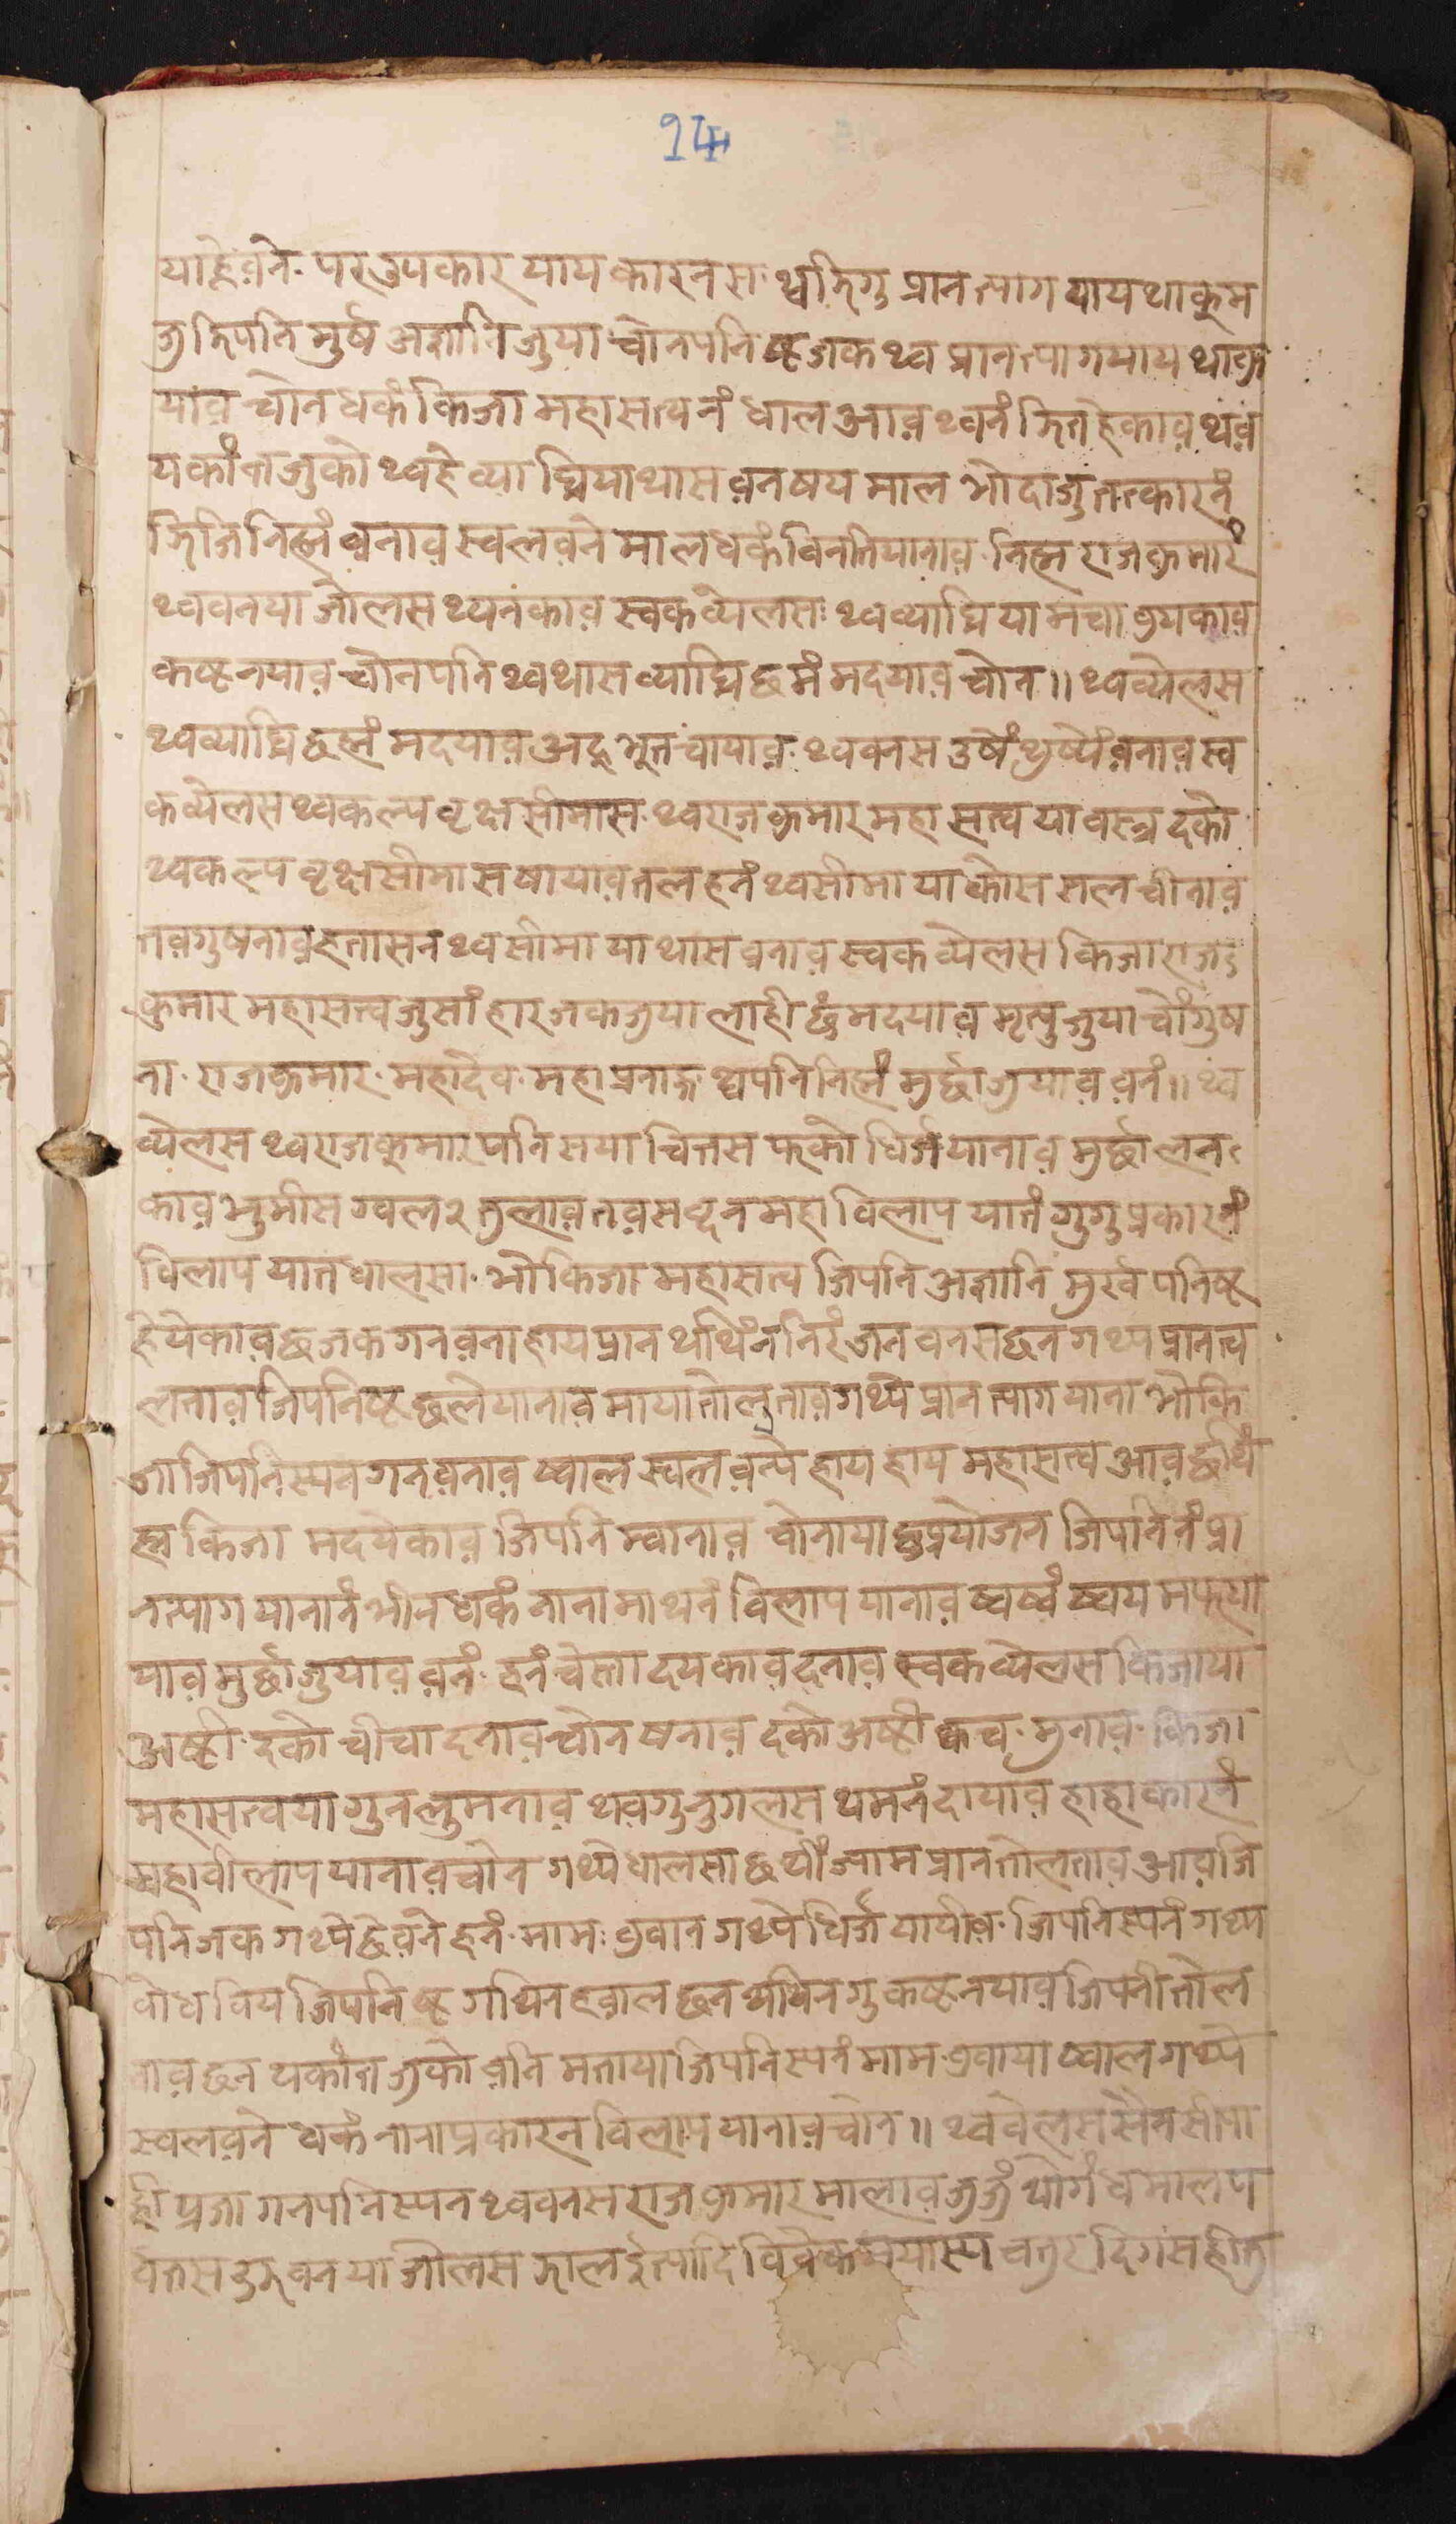 १५
याहे वने. परउपकार याय कारनस. थ्व झिगु प्रान त्याग याय थाकुम
जु झिपनि मुर्ष अज्ञानि जुया चोनपनि ष्ट जक थ्व प्रान त्याग याय थाकु
याव चोन धकं किजा महासत्व नं धाल आव थ्वनं झित हेकाव थव
यकांत जुको थ्वहे व्याघ्रिया थास वन षय माल भो दाजु तत्कारनं
झिजि निह्मं वनाव स्वलवने माल धकं विनतियानाव. निह्म राजकुमारं
थ्व वनया जोलस थ्यनकाव स्वकव्येलस. थ्व व्याघ्रिया मचा व्रयकाव
कष्ट नयाव चोनपनि थ्व थास व्याघ्रि छमं मदयाव चोन॥ थ्वव्येलस
थ्व व्याघ्रि छह्मं मदयाव अद्भूत चायाव. थ्व वनस उषें थुषें वनाव स्व
कव्येलस थ्व कल्पवृक्ष सीमास. थ्व राजकुमार महासत्व या वस्त्र दको
थ्व कल्पवृक्ष सीमास षायाव तल हनं थ्व सीमा या कोस सल चीनाव
तवगु षनाव हतासन थ्व सीमा या थास वनाव स्वकव्येलस किजा राज
कुमार महासत्व जुसां हार जक जुया लाही छुं मदयाव मृत्यु जुया चोंगु ष
ना. राजकुमार. महादेव. महाप्रनाद. थ्वपनि निह्मं मुर्छा जुयाव वनं॥ थ्व
व्येलस थ्व राजकुमार पनिसया चित्तस फको धिर्ज यानाव मुर्छा लन
काव भुमीस ग्वल२ तुलाव तव सव्दन महा विलाप यातं गुगु प्रकारनं
विलाप यात धालसा. भो किजा महासत्व जिपनि अज्ञानि मुर्ख पनिष्ट
हेयेकाव छ जक गन वना हाय प्रान थथिंन निरंजन वनस छन गथ्य प्रान त्व
लताव जिपनिष्ट छले यानाव माया तोलताव गथ्ये प्रान त्याग याना भो कि
जा जिपनिस्यन गन वनाव ष्वाल स्वल वन्ये हाय हाय महासत्व आव छथिं
ह्म किजा मदयेकाव जिपनि म्वानाव चोनाया छु प्रयोजन जिपनिनं प्रा
न त्याग यानानं भीन धकं नाना माथनं विलाप यानाव ष्वष्वं ष्वय मफया
याव मुर्छा जुयाव वनं. हनं चेस्ता दयकाव दनाव स्वकव्येलस किजाया
अष्टी. दको चीचा दनाव चोन षनाव दको अष्टी क्वच. मुनाव. किजा
महासत्वया गुन लुमनाव थवगु नुगलस थमनं दायाव हाहाकारनं
महावीलाप यानाव चोन गथ्ये धालसा छ थीं ज्याम प्रान तोलताव आव जि
पनि जक गथ्ये छे वने हनं. माम. व्रवान गथ्ये धिर्ज यायीव. जिपनिस्यनं गथ्य
वोध विय जिपनिष्ट गथिन हवाल छन थथिनगु कष्ट नयाव जिपनी तोल
ताव छन यकांत जुको वनि मताया जिपनिस्यनं माम व्रवाया ष्वाल गथ्ये
स्वलवने धकं नानाप्रकारन विलाप यानाव चोन॥ थ्ववेलस सैन सीपा
ही प्रजागन पनिस्यन थ्व वनस राजकुमार मालाव जुजुं थो गंधमालप
र्वतस दुगु वनया जोलस झाल ईत्यादि विवेक मयास्य चतुरदिगस हीतु